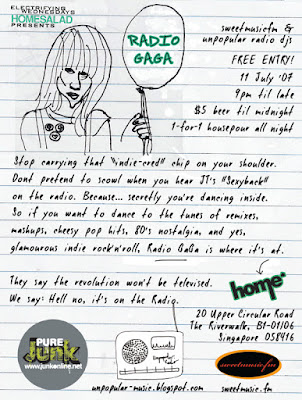 ELECTRIFYING
WEDNESDAYS
HOMESALAD
PRESENTS
RADIO
GAGA
sweetmusicfm &
unpopular radio djs
FREE ENTRY!
11 July '07
9pm til late
$5 beer til midnight
1-for-1 housepour all night
Stop carrying that "indie-cred" chip on your shoulder.
Dont pretend to scowl when you hear JT's "Sexyback"
on the radio. Because... secretly you're dancing inside.
So if you want to dance to the tunes of remixes,
mashups, cheesy pop hits, 80's nostalgia, and yes,
glamourous indie rock'n'roll, Radio GaGa is where it's at.
They say the revolution won't be televised.
We say: Hell no, it's on the Radio.
home
20 Upper Circular Road
The Riverwalk, B1-01/06
Singapore 058416
PURE
JUNK
www.junkonline.net
sweetmusicfm
unpopular-music.blogspot.com
sweetmusic.fm